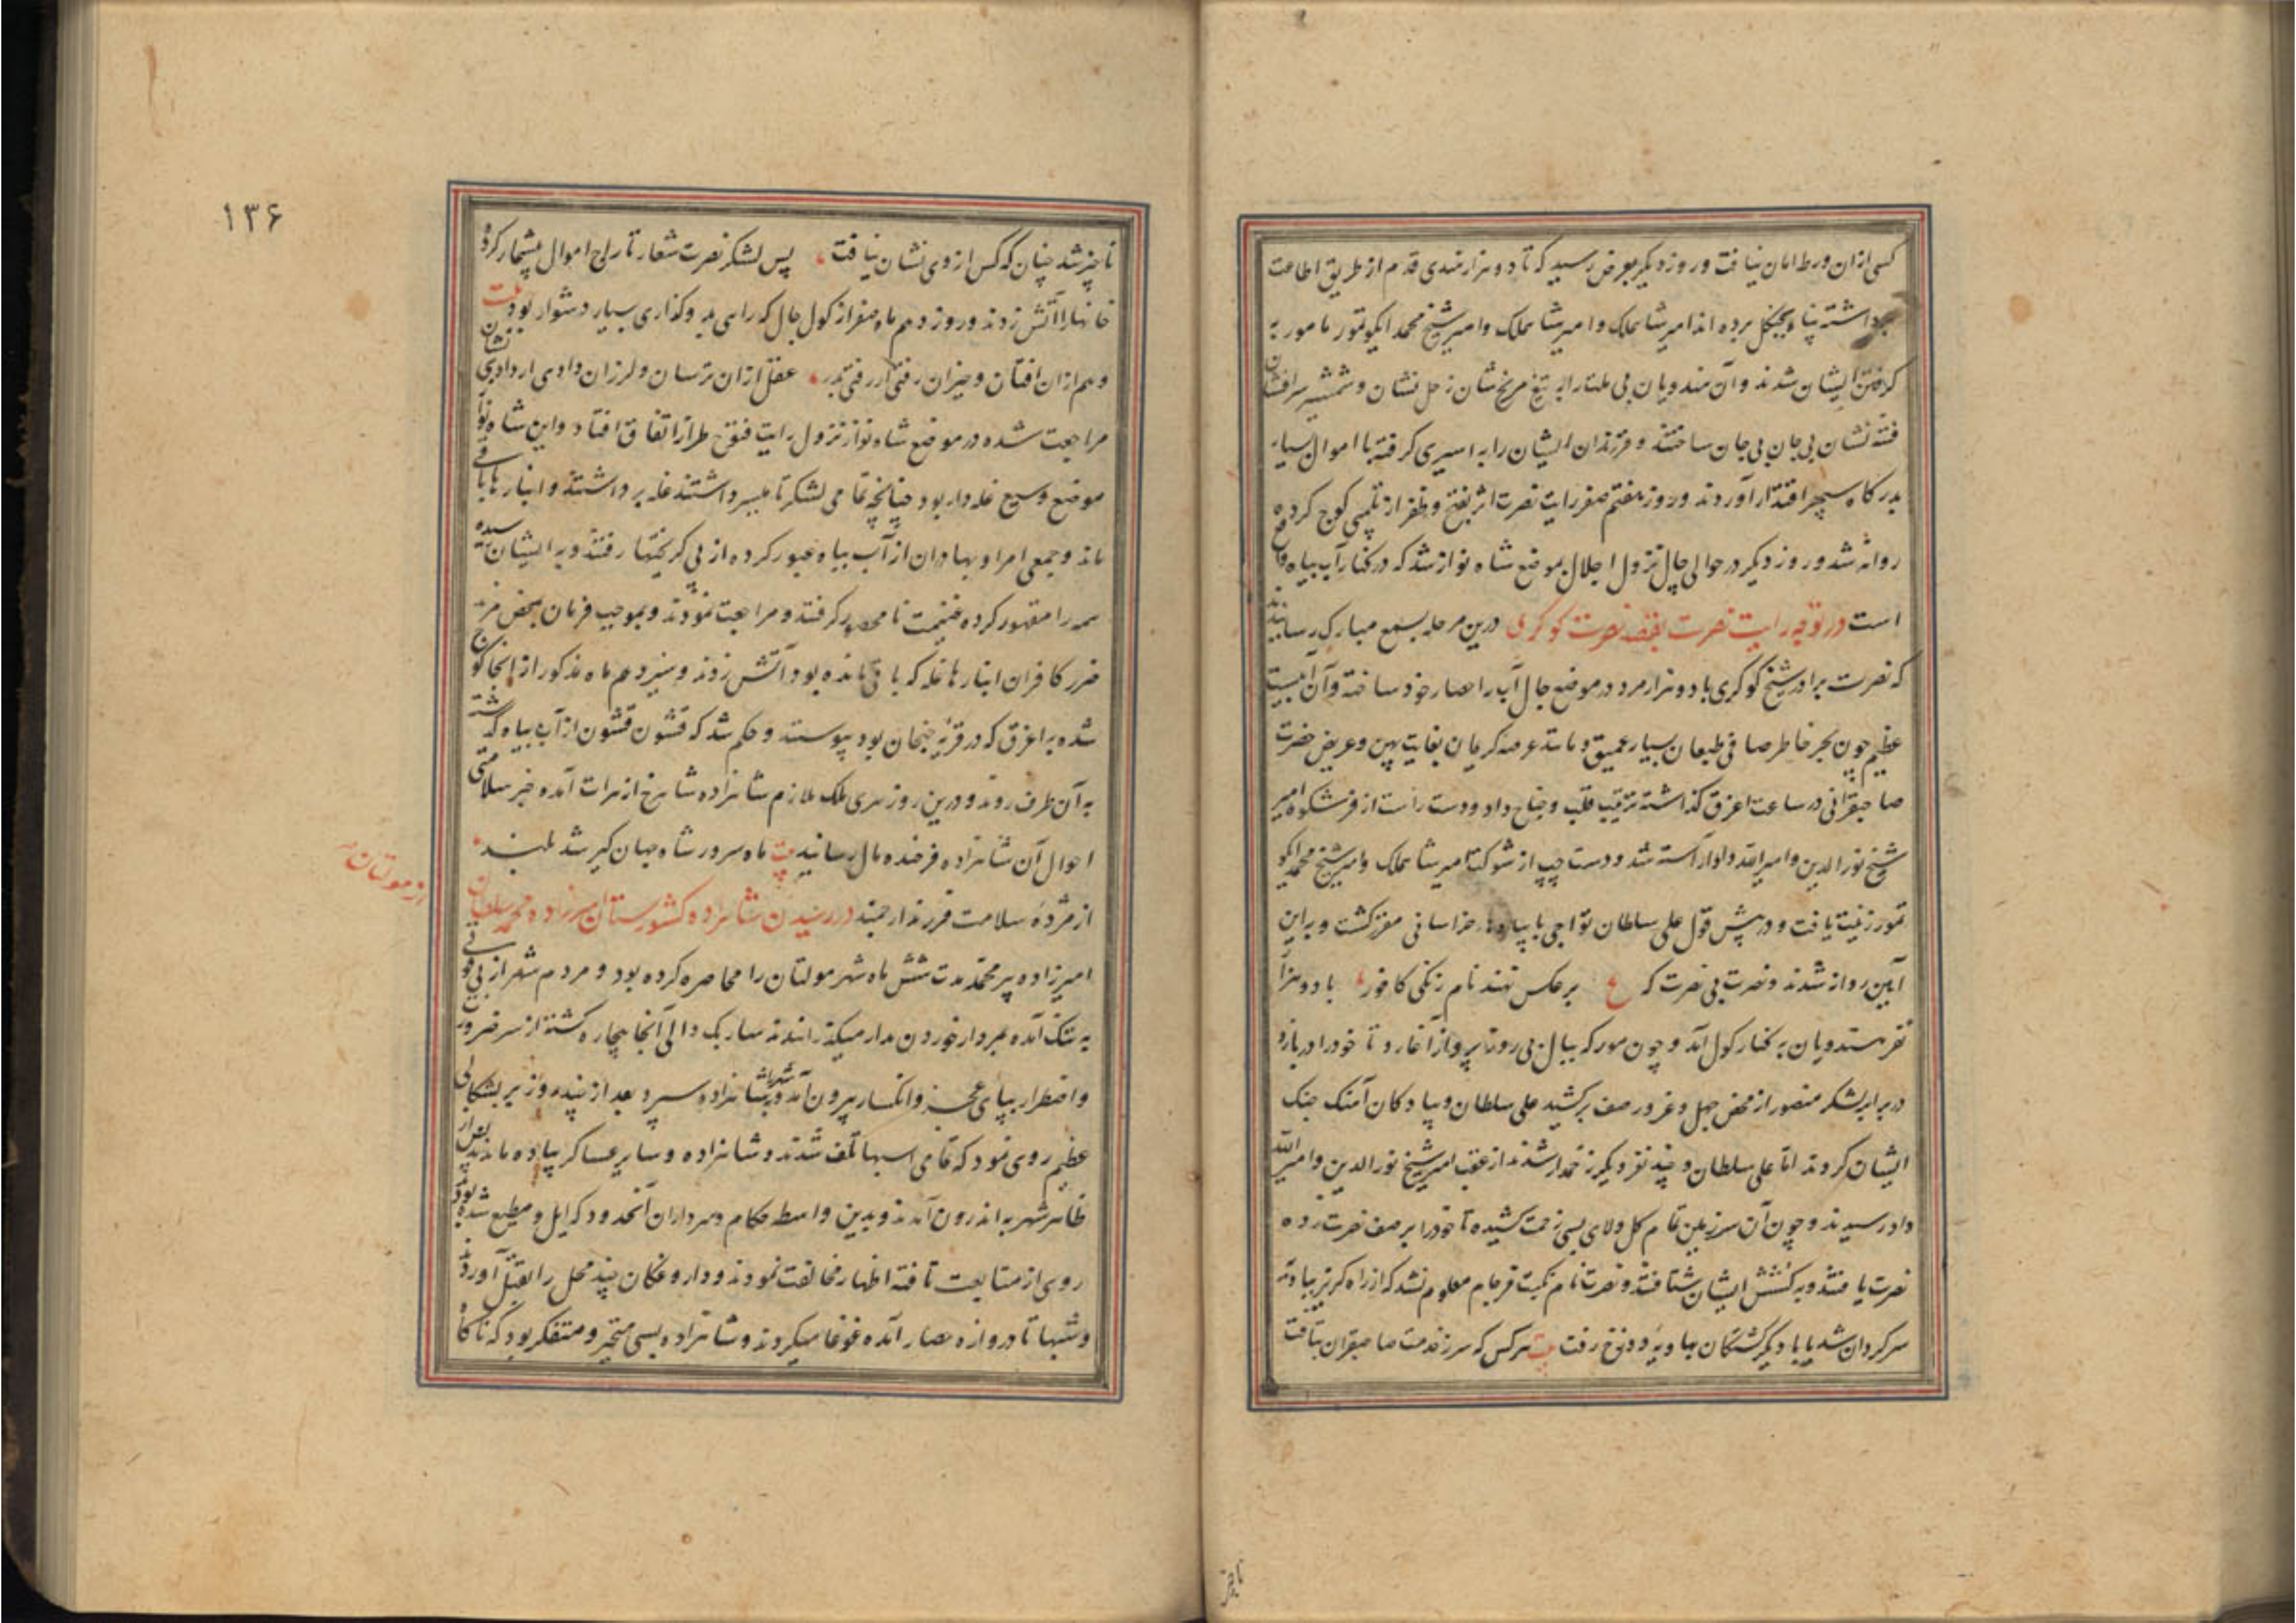 کسی ازان ورطه امان نیافت و روز دیگر بعرض رسید که تا دو هزار هندی قدم از طریق اطاعت
برداشته پناه بجنگل برده اند امیر شاهملک و امیر شاهملک و امیر شیخ محمد ایکو تمور مامور به
گرفتن ایشان شدند و آن هندویان بی ملتار از تیغ مریخ نشان زحل نشان و شمشیر سرافشان
فتنه نشان بی جان بی جان ساختند و فرزندان ایشان را به اسیری گرفته با اموال بسیار
بدرگاه سپهر اقتدار آوردند و روز هفتم صفر رایت نصرت اثر بفتح و ظفر از تلمبی کوچ کرده
روانه شد و روز دیگر در حوالی جال نزول اجلال بموضع شاه نواز شد که در کنار آب بیاه واقع
است در توجه رایت نصرت بقصد نصرت کوکری درین مرحله بسمع مبارک رسانیدند
که نصرت برادر شیخ کوکری با دو هزار مرد در موضع جال آب را حصار خود ساخته و آن آبیست
عظیم چون بحر خاطر صافی طبعان بسیار عمیق و مانند عرصه کریمان بغایت پهن و عریض حضرت
صاحبقرانی در ساعت اغرق گذاشته ترتیب قلب و جناح داد و دست راست از فر شکوه امیر
شیخ نور الدین و امیر الله داد آراسته شد و دست چپ از شوکت امیر شاهملک و امیر شیخ محمد ایکو
تمور زینت یافت و در پیش قول علی سلطان تواجی با پیاده‌ها خراسانی مقرر گشت و براین
آیین روانه شدند و نصرت بی نصرت که ع بر عکس نهند نام زنگی کافور، با دو هزار
نفر هندویان به کنار کول آمد و چون مور که ببال بی روزنا پرواز آغازد تا خود را درباره
در برابر لشکر منصور از محض جهل و غرور صف برکشید علی سلطان و پیادگان آهنگ جنگ
ایشان کردند اما علی سلطان و چند نفر دیگر زخمدار شدند از عقب امیر شیخ نور الدین و امیر الله
داد رسیدند و چون آن سرزمین تمام گل و لای بسی زحمت کشیده تا خود را بر صف نصرت زده
نصرت یافتند و به کشش ایشان شتافتند و نصرت نام نکبت فرجام معلوم نشد که از راه گریز بیاد
سرگردان شد یا با دیگر کشتگان جاویه دوزخ رفت بیت هر کس که سر ز خدمت صاحبقران بتافت
ناچیز
۱۳۶
ناچیز شد چنان که کس از وی نشان نیافت، پس لشکر نصرت شعار تاراج اموال بیشمار کرده
خانها را آتش زدند و روز دهم ماه صفر از کول جال که راهی بد و گذاری بسیار دشوار بود بیت
وهم ازان افتان و خیزان رفتی ار رفتی بدر، عقل ازان ترسان و لرزان دادی ار دادی نشان
مراجعت شده در موضع شاه نواز نزول رایت فتح طراز اتفاق افتاد و این شاه نواز
موضع وسیع غله دار بود چنانچه تمامی لشکر تا میسر داشتند غله برداشتند و انبارها باقی
ماند و جمعی امرا و بهادران از آب بیاه عبور کرده از پی گریختها رفتند و به ایشان رسیده
همه را مقهور کرده غنیمت نامحصور گرفتند و مراجعت نمودند و بموجب فرمان بمحض
ضرر کافران انبارها غله که باقی مانده بود آتش زدند و سیزدهم ماه مذکور از انجا کوچ
شده به اغرق که در قریه جنجان بود پیوستند و حکم شد که قشون قشون از آب بیاه گذشته
به آن طرف روند و درین روز هری ملک ملازم شاهزاده شاهرخ از هرات آمده خبر سلامتی
احوال آن شاهزاده فرخنده مال رسانید بیت ماه سرور شاه جهان گیر شد بلند،
از مژدهٔ سلامت فرزند ارجمند در رسیدن شاهزاده کشورستان میرزاده محمد سلطان
از مولتان
امیرزاده پیر محمد مدت شش ماه شهر مولتان را محاصره کرده بود و مردم شهر از بی قوتی
به تنگ آمده بمردار خوردن مدار میگذرانیدند سارنگ والی آنجا بیچاره گشته از سر ضرورت
و اضطرار بپای عجز و انکسار بیرون آمد و شهر را بشاهزاده سپرد بعد از چند روز برشکالی
عظیم روی نمود که تمامی اسبها تلف شدند و شاهزاده و سایر عساکر پیاده ماندند پس از
ظاهر شهر به اندرون آمدند و بدین واسطه حکام و سرداران آنحدود که ایل و مطیع شده بودند
روی از متابعت تافته اظهار مخالفت نمودند و داروغگان چند محل را بقتل آوردند
و شبها تا دروازه حصار آمده غوغا میکردند و شاهزاده بسی متحیر و متفکر بود که ناگاه